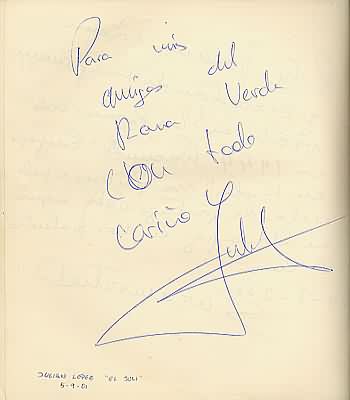 Para mis
amigos del
Verde
Rana
con todo
cariño
Juli
JULIAN LOPEZ "EL JULI"
5-9-01